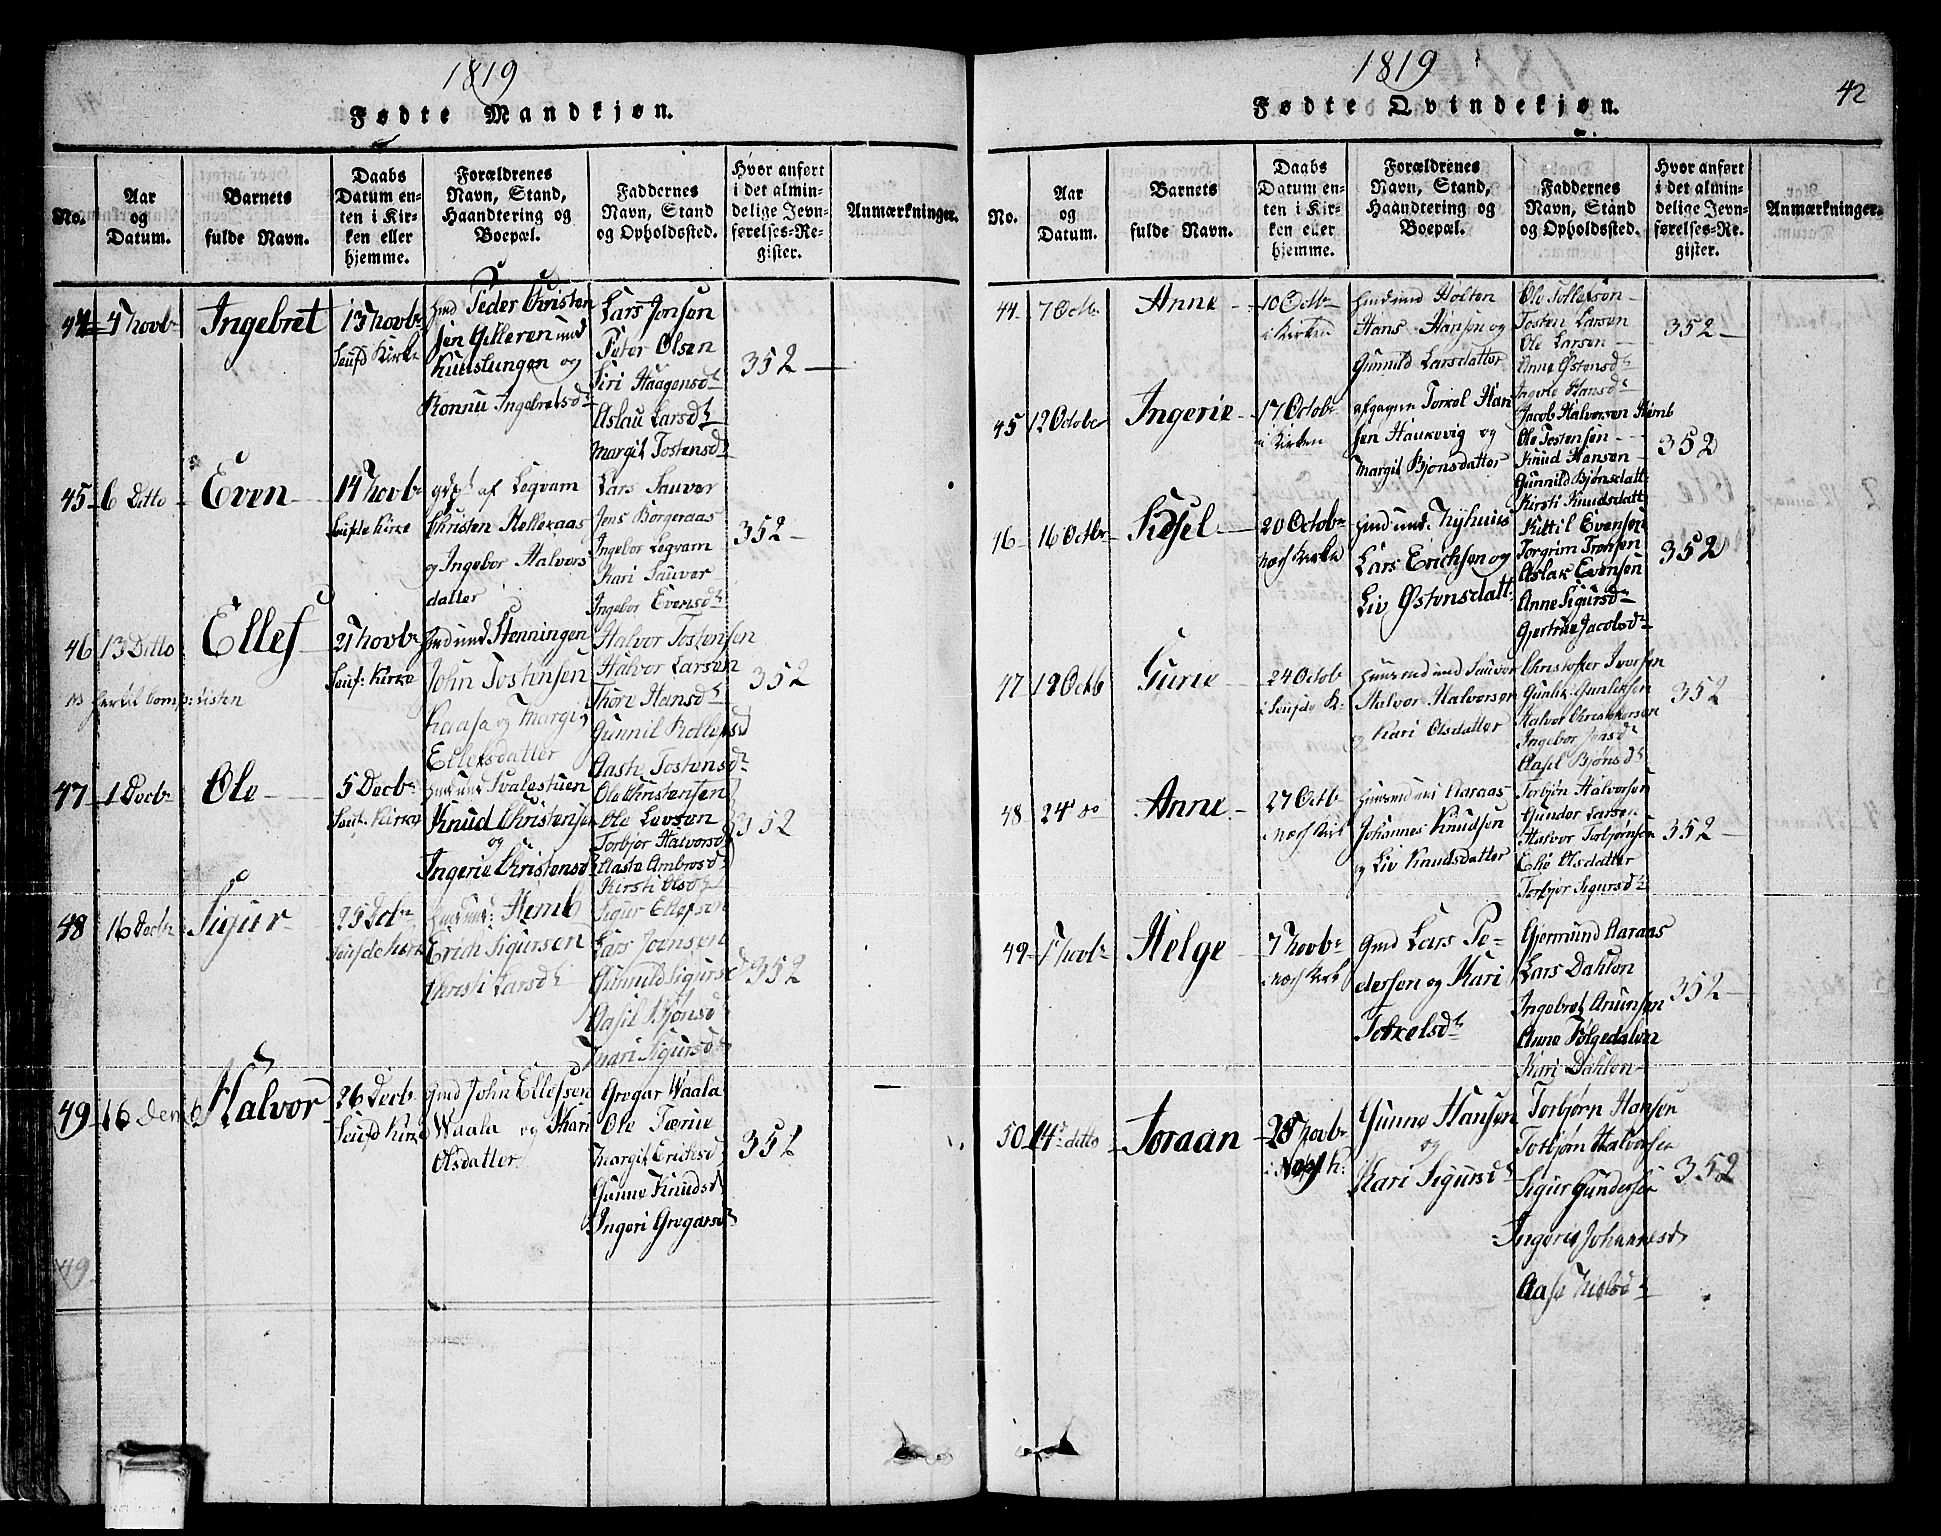 1819
Fødte Mandkjøn.
No.
Aar
og
Datum.
Barnets
fulde Navn.
Daabs
Datum en-
ten i Kir-
ken eller
hjemme.
Forældrenes
Navn, Stand,
Haandtering og
Boepæl.
Faddernes
Navn, Stand
og Opholdssted.
Hvor anført
i det almin-
delige Jevn-
førelses-Re-
gister.
Anmærkninger.
44 4 Novbr
Ingebret
13 Novbr
Kirke
Peder Christen
sen
og
Ronnu Ingebretsdr
Lars Jonsen
Peter Olsen
Siri Haagensdr
Aslau Larsdr
Margit Tostensdr
352
45 6 Ditto
Even
14 Novbr
Kirke
af Legvam
Christen Helleraas
og Ingebor Halvors
datter
Lars Sauver
Jens Borgeraas
Ingebor Legvam
Kari Sauver
Ingebor Evensdr
352
46 13 Ditto
Ellef
21 Novbr
Kirke
Stenningen
John Tostensen
Kaasa og Margit
Ellefsdatter
Halvor Tostensen
Halvor Larsen
Thore Hansdr
Gunnil Rollefsd
Aaste Tostensdr
352
47 1 Decbr
Ole
5 Decbr
Kirke
Svalestuen
Knud Christensen
og
Ingerie Christensd
Ole Christensen
Ole Levsen
Torbjør Halvorsd
Aaste Ambrosd
Kirsti Olsdr
352
48 16 Decbr
Sigur
25 Dcbr
Kirke
Hemb
Erich Sigursen
Christi Larsdr
Sigur Ellefsen
Lars Joensen
Gunnild Sigursd
Aasil Bjønsd
Mari Sigursdr
352
49 16 Decmb
Halvor
26 Decbr
Kirke
Gmd John Ellefsen
Waala og Kari
Olsdatter
Gregar Waala
Ole Tærue
Margit Erichsd
Gunne Knudsd
Ingeri Gregarsd
352
49
1819
42
Fødte Qvindekjøn.
No.
Aar
og
Datum.
Barnets
fulde Navn.
Daabs
Datum en-
ten i Kir-
ken eller
hjemme.
Forældrenes
Navn, Stand,
Haandtering og
Boepæl.
Faddernes
Navn, Stand
og Opholdssted.
Hvor anført
i det almin-
delige Jevn-
førelses-Re-
gister.
Anmærkninger.
44 7 Octbr
Anne
10 Octbr
i Kirken
Holten
Hans Hansen og
Gunnild Larsdatter
Ole Tollefsøn
Tosten Larsen
Ole Larsen
Anne Østensdr
Ingerie Hansdr
352
45 12 October
Ingerie
17 Octobr
i Kirken
Torkel Han
sen Haukevig og
Margit Bjonsdatter
Jacob Halvorsen Hemb
Ole Tostensen
Knud Hansen
Gunnild Bjønsdatt
Kirsti Knudsdatt
352
46 16 Octbr
Sidsel
20 Octobr
Næs Kirke
Nyhuus
Lars Erichsen og
Liv Østensdatt
Kittil Evensen
Torgrim Tronsen
Aslak Evensen
Anne Sigursdr
Gjertrue Jacobsdr
352
47 19 Octb
Gurie
24 Octob
i Seufde K.
Husmd und Sauver
Halvor Halvorsen
og Kari Olsdatter
Christoffer Iversen
Gunlek Gunleksen
Halvor Christophersen
Ingebor Jensdr
Aasil Bjønsdr
352
48 24 do
Anne
27 Octb
i Næs Kirk
Aaraas
Johannes Knudsen
og Liv Knudsdatter
Torbjøn Halvorsen
Gunder Larsen
Halvor Torbjørnsen
Olsdatter
Torbjør Sigursdr
352
49 1 Novbr
Helge
7 Novbr
i Næs Kirk
Gmd Lars Pe-
dersen og Kari
Torkelsdr
Gjermund Aaraas
Lars Dahlen
Ingebret Anunsen
Anne Følgedalen
Kari Dahlen
352
50 14 ditto
Joraan
28 Novbr
i Næs K:
Gunne Hansen
og
Kari Sigursdr
Torbjørn Hansen
Torbjøn Halvorsen
Sigur Gundersen
Ingerie Johannesd
Aase Nielsdr
352